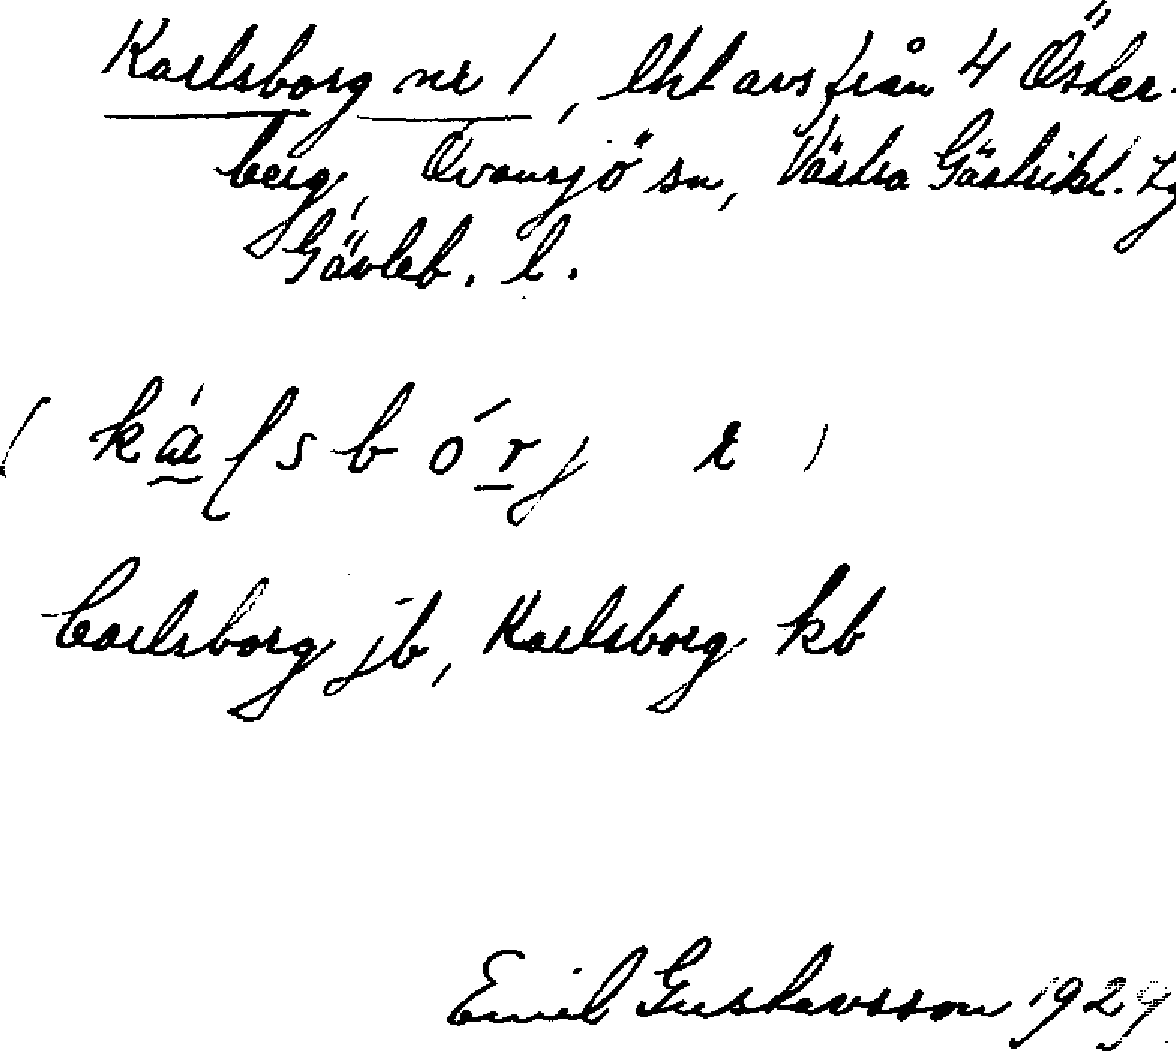 Karlsborg nr 1, lht avs från 4 Öster-
berg, Ovansjö sn, Västra Gästrikl.
Gävleb. l.
Carlsborg jb, Karlsborg kb
Emil Gustavsson 1929